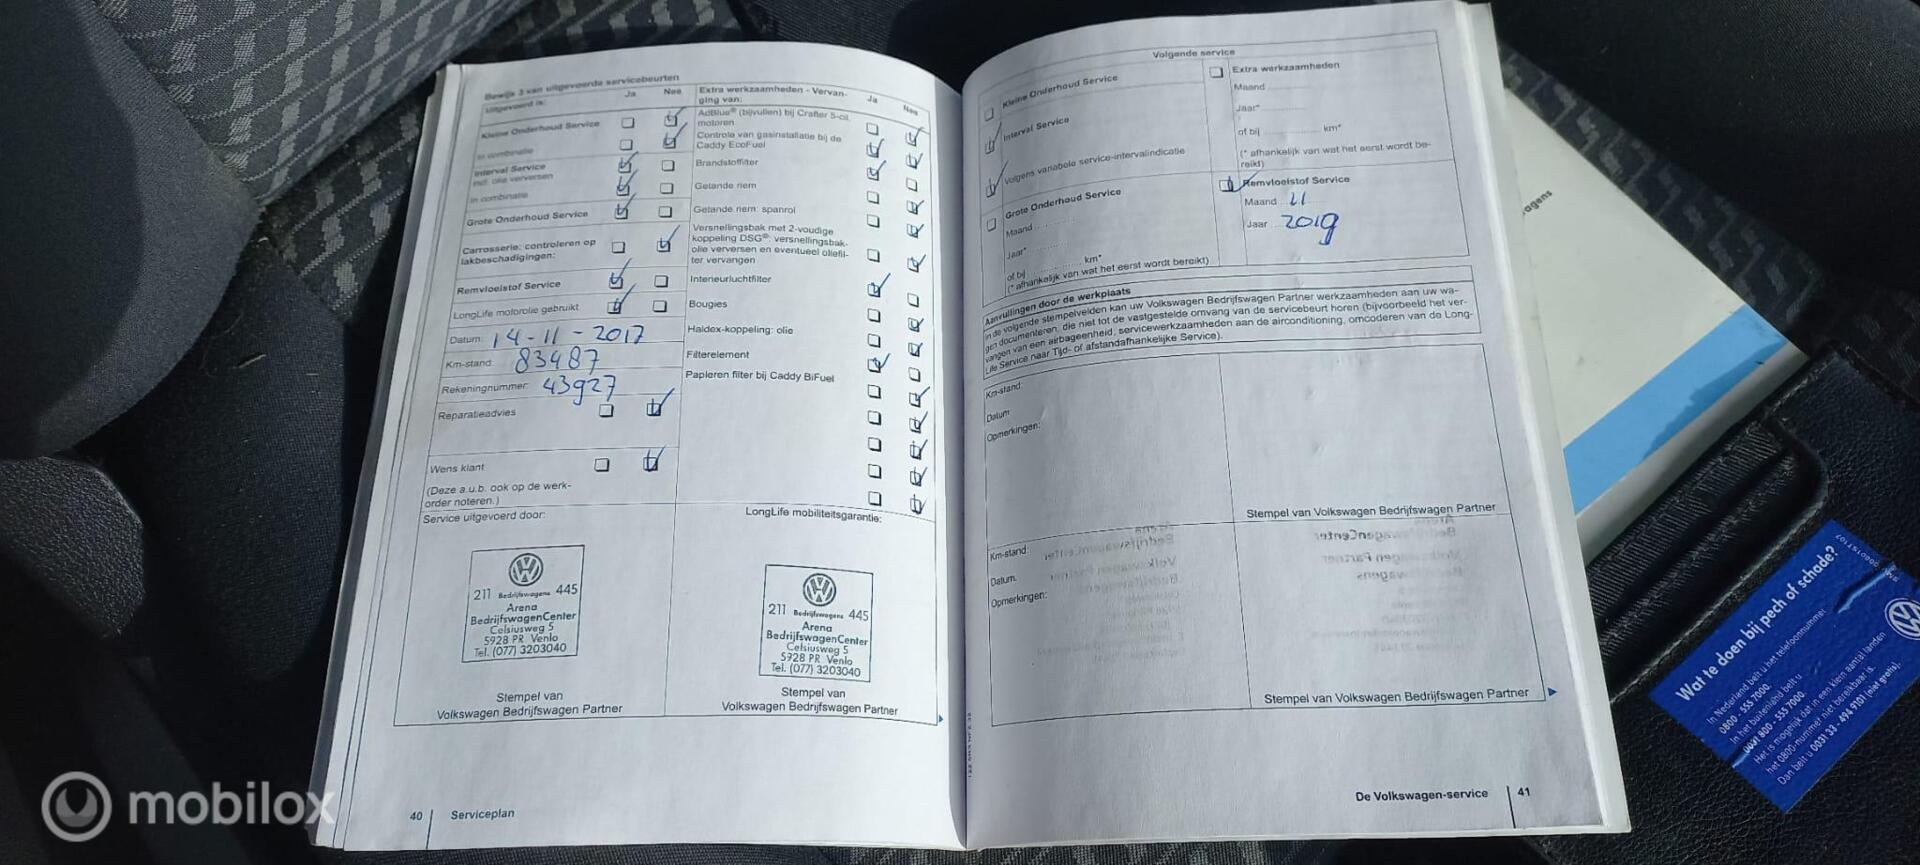 Bewijs 3 van uitgevoerde servicebeurten
Uitgevoerd is:
Ja
Nee
Kleine Onderhoud Service
in combinatie
Interval Service
incl. olie verversen
in combinatie
Grote Onderhoud Service
Carrosserie: controleren op
lakbeschadigingen:
Remvloeistof Service
LongLife motorolie gebruikt
Datum: 14-11-2017
Km-stand: 83487
Rekeningnummer: 43927
Reparatieadvies
Wens klant
(Deze a.u.b. ook op de werk-
order noteren.)
Extra werkzaamheden - Vervan-
ging van:
Ja
Nee
AdBlue® (bijvullen) bij Crafter 5-cil.
motoren
Controle van gasinstallatie bij de
Caddy EcoFuel
Brandstoffilter
Getande riem
Getande riem: spanrol
Versnellingsbak met 2-voudige
koppeling DSG®: versnellingsbak-
olie verversen en eventueel oliefil-
ter vervangen
Interieurluchtfilter
Bougies
Haldex-koppeling: olie
Filterelement
Papieren filter bij Caddy BiFuel
Service uitgevoerd door:
LongLife mobiliteitsgarantie:
211 Bedrijfswagens 445
Arena
BedrijfswagenCenter
Celsiusweg 5
5928 PR Venlo
Tel. (077) 3203040
211 Bedrijfswagens 445
Arena
BedrijfswagenCenter
Celsiusweg 5
5928 PR Venlo
Tel. (077) 3203040
Stempel van
Volkswagen Bedrijfswagen Partner
Stempel van
Volkswagen Bedrijfswagen Partner
40
Serviceplan
Volgende service
Kleine Onderhoud Service
Interval Service
Volgens variabele service-intervalindicatie
Grote Onderhoud Service
Maand
Jaar*
of bij km*
(* afhankelijk van wat het eerst wordt bereikt)
Extra werkzaamheden
Maand
Jaar*
of bij km*
(* afhankelijk van wat het eerst wordt be-
reikt)
Remvloeistof Service
Maand 11
Jaar 2019
Aanvullingen door de werkplaats
In de volgende stempelvelden kan uw Volkswagen Bedrijfswagen Partner werkzaamheden aan uw wa-
gen documenteren, die niet tot de vastgestelde omvang van de servicebeurt horen (bijvoorbeeld het ver-
vangen van een airbageenheid, servicewerkzaamheden aan de airconditioning, omcoderen van de Long-
Life Service naar Tijd- of afstandafhankelijke Service).
Km-stand:
Datum
Opmerkingen:
Stempel van Volkswagen Bedrijfswagen Partner
Km-stand:
Datum.
Opmerkingen:
Stempel van Volkswagen Bedrijfswagen Partner
De Volkswagen-service
41
Wat te doen bij pech of schade?
In Nederland belt u het telefoonnummer
0800 - 555 7000.
In het buitenland belt u
0031 800 - 555 7000.
Het is mogelijk dat in een klein aantal landen
het 0800-nummer niet bereikbaar is.
Dan belt u 0031 33 - 494 9701 (niet gratis).
mobilox